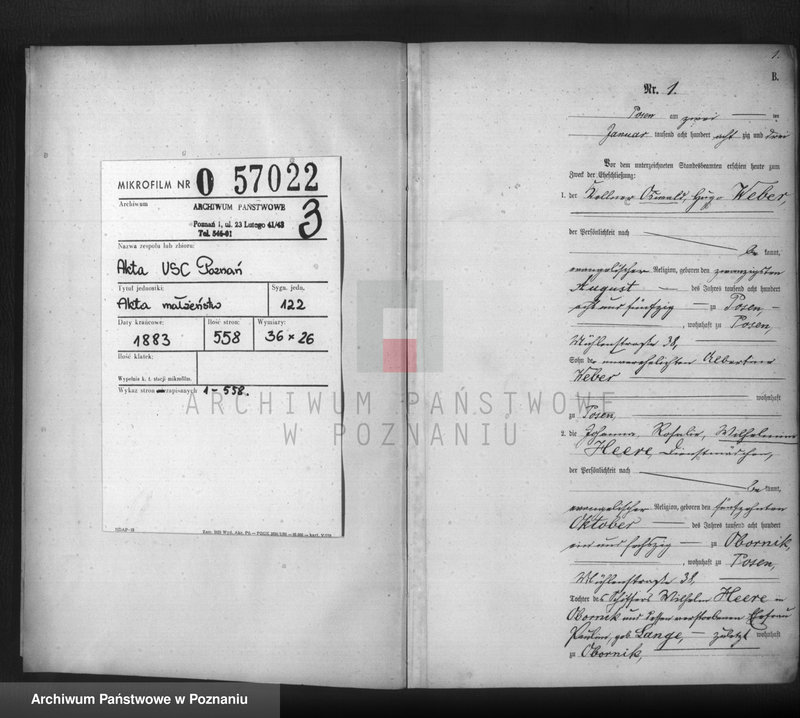 MIKROFILM NR 0 57022
Archiwum
ARCHIWUM PAŃSTWOWE
Poznań 1, ul. 23 Lutego 41/43
Tel. 546-01
3
Nazwa zespołu lub zbioru:
Akta USC Poznań
Tytuł jednostki:
Akta małżeńskie
Sygn. jedn.
122
Daty krańcowe:
1883
Ilość stron:
558
Wymiary:
36 × 26
Ilość klatek:
Wypełnia k. t. stacji mikrofilm.
Wykaz stron zapisanych 1-558.
ARCHIWUM PAŃSTWOWE
W POZNANIU
1.
B.
Nr. 1.
Posen am zwei ten
Januar tausend acht hundert acht zig und drei
Vor dem unterzeichneten Standesbeamten erschien heute zum
Zweck der Eheschließung:
1. der Kellner Oswald, Hugo Weber,
der Persönlichkeit nach
be kannt,
evangelischer Religion, geboren den zwanzigsten
August des Jahres tausend acht hundert
acht und fünfzig zu Posen,
, wohnhaft zu Posen,
Mühlenstraße 38,
Sohn der unverehelichten Albertine
Weber
wohnhaft
zu Posen,
2. die Johanna, Rosalie, Wilhelmine
Heere, Dienstmädchen,
der Persönlichkeit nach
be kannt,
evangelischer Religion, geboren den fünfzehnten
Oktober des Jahres tausend acht hundert
ein und sechszig zu Obornik,
, wohnhaft zu Posen,
Mühlenstraße 38,
Tochter des Schiffers Wilhelm Heere in
Obornik und dessen verstorbenen Ehefrau
Pauline, geb. Lange, zuletzt wohnhaft
zu Obornik,
Archiwum Państwowe w Poznaniu